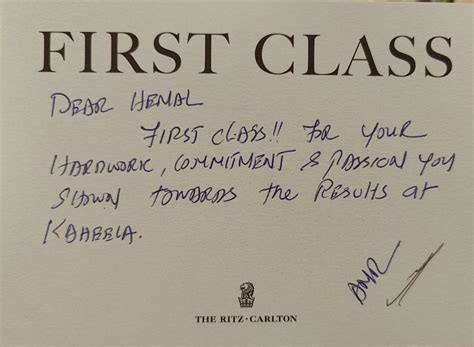 FIRST CLASS
DEAR HEMAL
FIRST CLASS!! FOR YOUR
HARDWORK, COMMITMENT & PASSION YOU
SHOWN TOWARDS the RESULTS at
KAHEELA.
THE RITZ-CARLTON